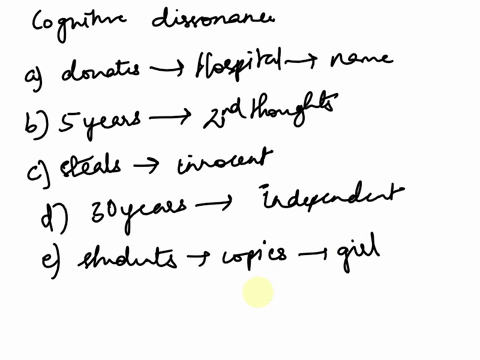 Cognitive dissonance
a) donates → Hospital → name
b) 5 years → 2nd thoughts
c) steals → innocent
d) 30 years → independent
e) students → copies → girl